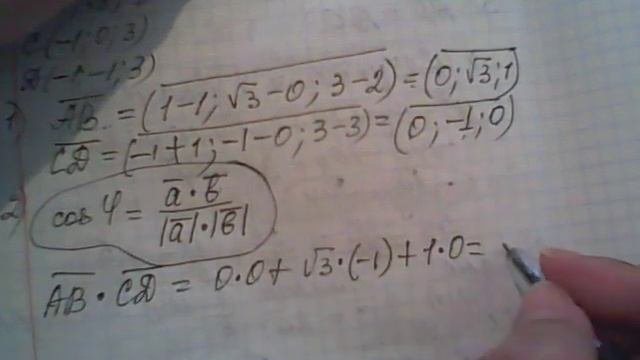 C(-1; 0; 3)
Д(-1-1; 3)
1) AB = (1-1; √3-0; 3-2) = (0; √3; 1)
CД = (-1+1; -1-0; 3-3) = (0; -1; 0)
2) cos φ = a·b / |a|·|b|
AB · CД = 0·0 + √3·(-1) + 1·0 =